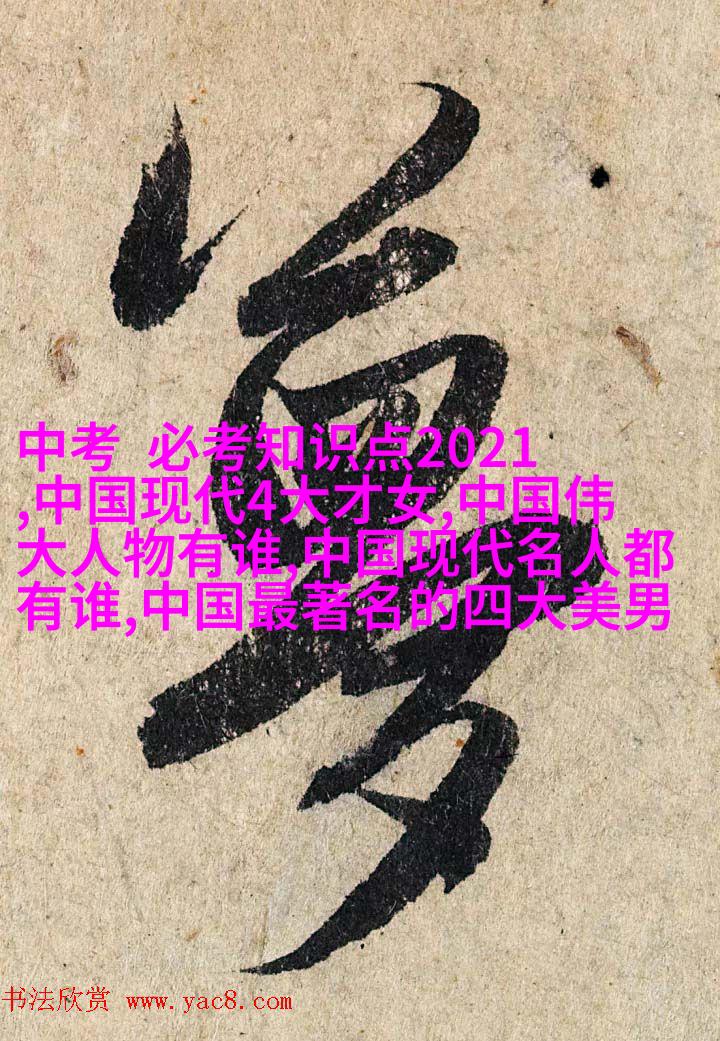 夢
中考 必考知识点2021
,中国现代4大才女,中国伟
大人物有谁,中国现代名人都
有谁,中国最著名的四大美男
书法欣赏 www.yac8.com